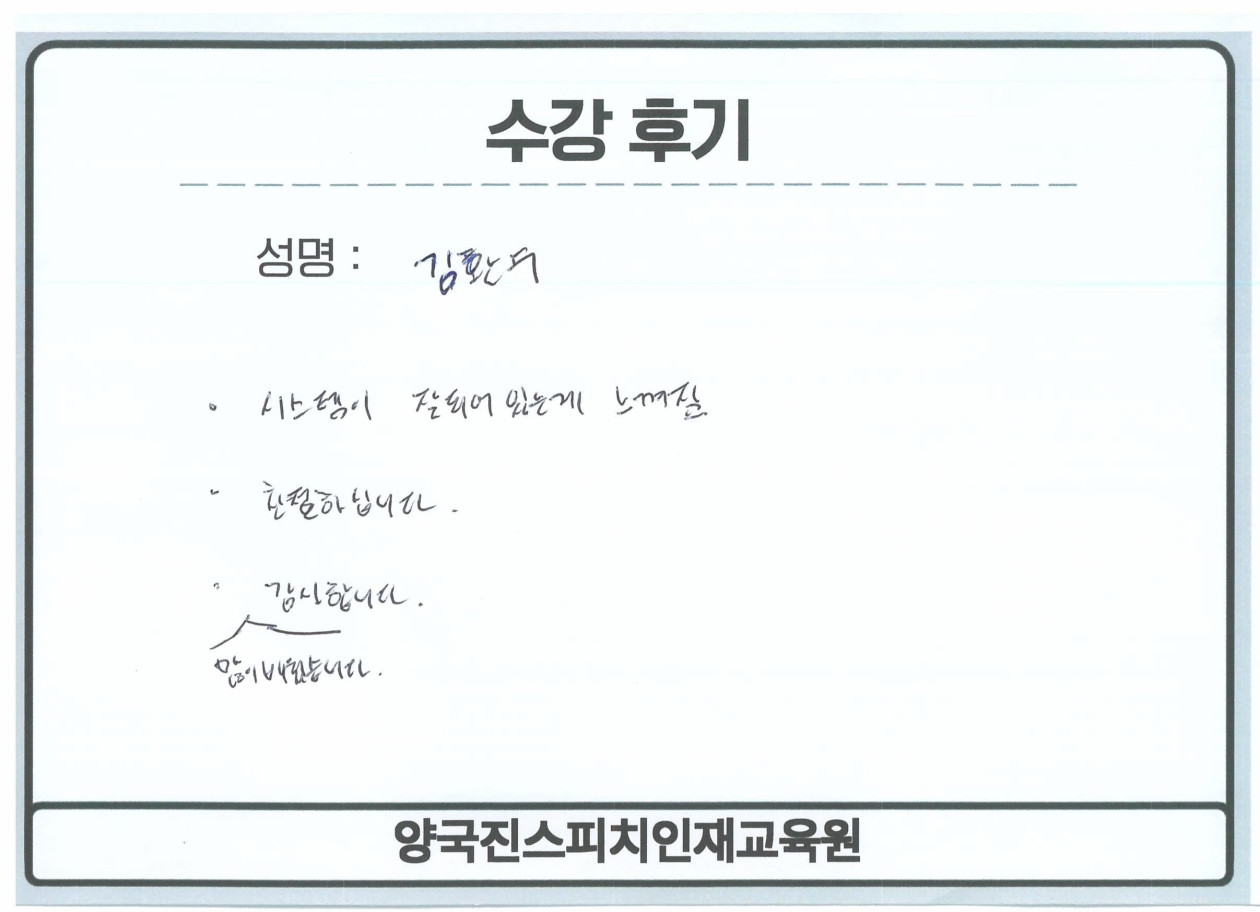 수강 후기
성명 :
· 시스템이 잘되어 있는게 느껴짐
· 친절하십니다.
· 감사합니다.
많이 배웠습니다.
양국진스피치인재교육원